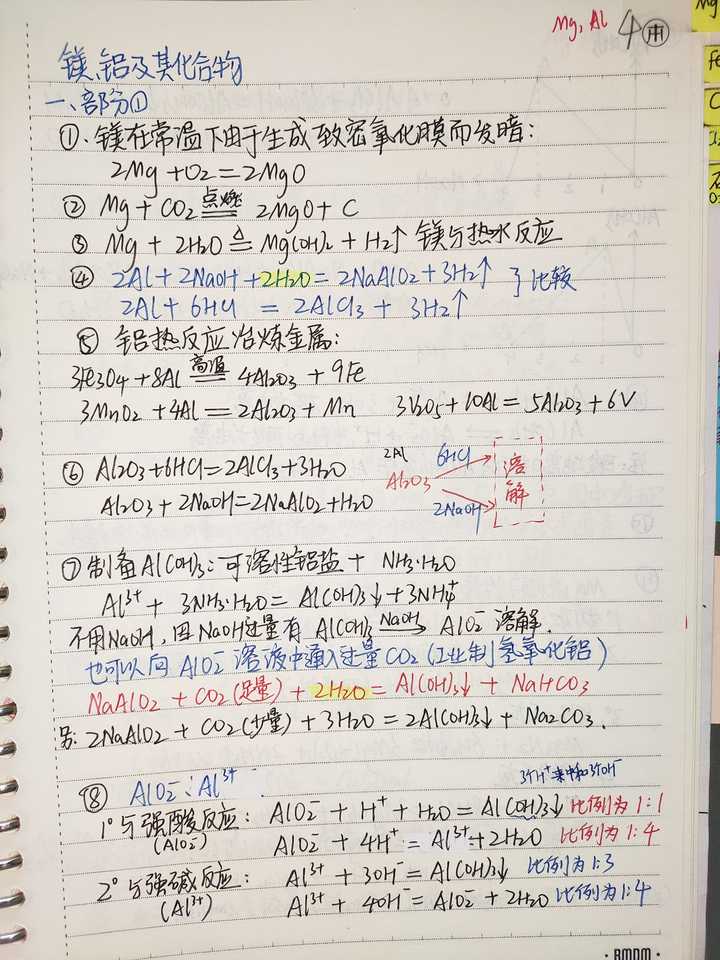 Mg, Al 4本
镁、铝及其化合物
一、部分①
①、镁在常温下由于生成致密氧化膜而发暗:
2Mg+O2=2MgO
② Mg+CO2 点燃 2MgO+C
③ Mg+2H2O △= Mg(OH)2+H2↑ 镁与热水反应
④ 2Al+2NaOH+2H2O=2NaAlO2+3H2↑ } 比较
2Al+6HCl=2AlCl3+3H2↑
⑤ 铝热反应冶炼金属:
3Fe3O4+8Al 高温 4Al2O3+9Fe
3MnO2+4Al=2Al2O3+Mn 3V2O5+10Al=5Al2O3+6V
⑥ Al2O3+6HCl=2AlCl3+3H2O
Al2O3+2NaOH=2NaAlO2+H2O
2Al 6HCl 溶解
Al2O3
2NaOH
⑦ 制备Al(OH)3:可溶性铝盐+NH3·H2O
Al3++3NH3·H2O=Al(OH)3↓+3NH4+
不用NaOH,因NaOH过量有Al(OH)3 NaOH→ AlO2- 溶解.
也可以向AlO2-溶液中通入过量CO2(工业制氢氧化铝)
NaAlO2+CO2(足量)+2H2O=Al(OH)3↓+NaHCO3
另:2NaAlO2+CO2(少量)+3H2O=2Al(OH)3↓+Na2CO3.
⑧ AlO2-:Al3+
3个H+来中和3个OH-
1°与强酸反应:AlO2-+H++H2O=Al(OH)3↓ 比例为1:1
(AlO2-) AlO2-+4H+=Al3++2H2O 比例为1:4
2°与强碱反应:Al3++3OH-=Al(OH)3↓ 比例为1:3
(Al3+) Al3++4OH-=AlO2-+2H2O 比例为1:4